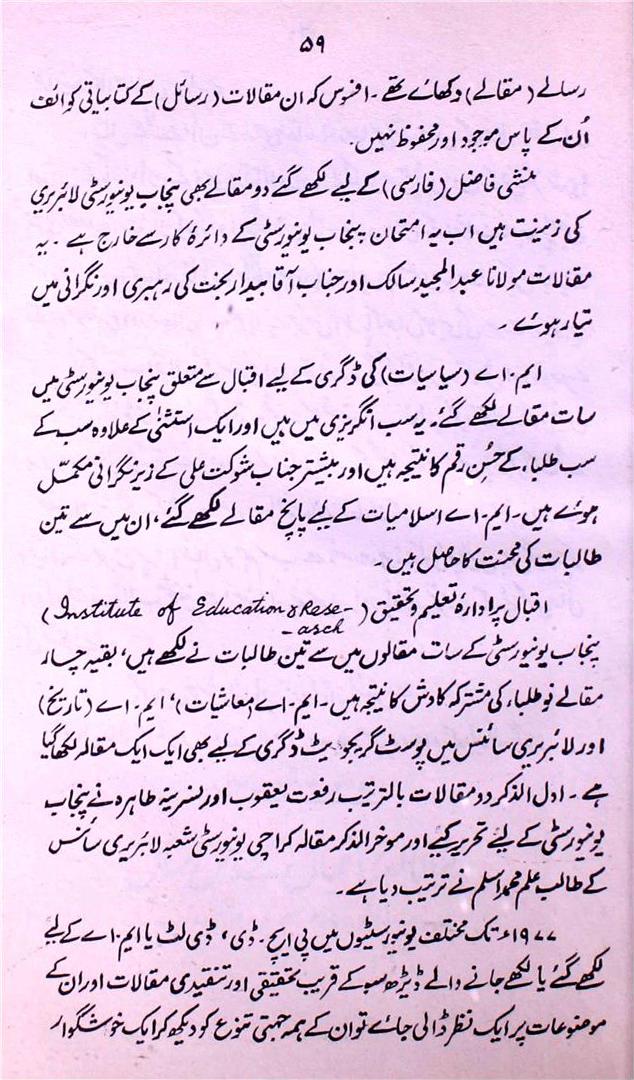 ۵۹
رسالے (مقالے) دکھائے تھے۔ افسوس کہ ان مقالات (رسائل) کے کتابیاتی کوائف
اُن کے پاس موجود اور محفوظ نہیں۔
منشی فاضل (فارسی) کے لیے لکھے گئے دو مقالے بھی پنجاب یونیورسٹی لائبریری
کی زینت ہیں اب یہ امتحان پنجاب یونیورسٹی کے دائرۂ کار سے خارج ہے۔ یہ
مقالات مولانا عبدالمجید سالک اور جناب آقا بیدار بخت کی رہبری اور نگرانی میں
تیار ہوئے۔
ایم۔اے (سیاسیات) کی ڈگری کے لیے اقبال سے متعلق پنجاب یونیورسٹی میں
سات مقالے لکھے گئے۔ یہ سب انگریزی میں ہیں اور ایک استثنیٰ کے علاوہ سب کے
سب طلباء کے حُسنِ رقم کا نتیجہ ہیں اور بیشتر جناب شوکت علی کے زیرِ نگرانی مکمّل
ہوئے ہیں۔ ایم۔اے اسلامیات کے لیے پانچ مقالے لکھے گئے، ان میں سے تین
طالبات کی محنت کا حاصل ہیں۔
اقبال پر ادارۂ تعلیم و تحقیق (Institute of Education & Rese-
-arch
پنجاب یونیورسٹی کے سات مقالوں میں سے تین طالبات نے لکھے ہیں، بقیہ چار
مقالے نو طلباء کی مشترکہ کاوش کا نتیجہ ہیں۔ ایم۔اے (معاشیات)، ایم۔اے (تاریخ)
اور لائبریری سائنس میں پوسٹ گریجویٹ ڈگری کے لیے بھی ایک ایک مقالہ لکھا گیا
ہے۔ اول الذکر دو مقالات بالترتیب رفعت یعقوب اور نسرینہ طاہرہ نے پنجاب
یونیورسٹی کے لیئے تحریر کیے اور موخر الذکر مقالہ کراچی یونیورسٹی شعبہ لائبریری سائنس
کے طالب علم محمد اسلم نے ترتیب دیا ہے۔
۱۹۷۷ء تک مختلف یونیورسٹیوں میں پی ایچ۔ڈی، ڈی لٹ یا ایم۔اے کے لیے
لکھے گئے یا لکھے جانے والے ڈیڑھ سو کے قریب تحقیقی اور تنقیدی مقالات اور ان کے
موضوعات پر ایک نظر ڈالی جائے تو ان کے ہمہ جہتی تنوع کو دیکھ کر ایک خوشگوار